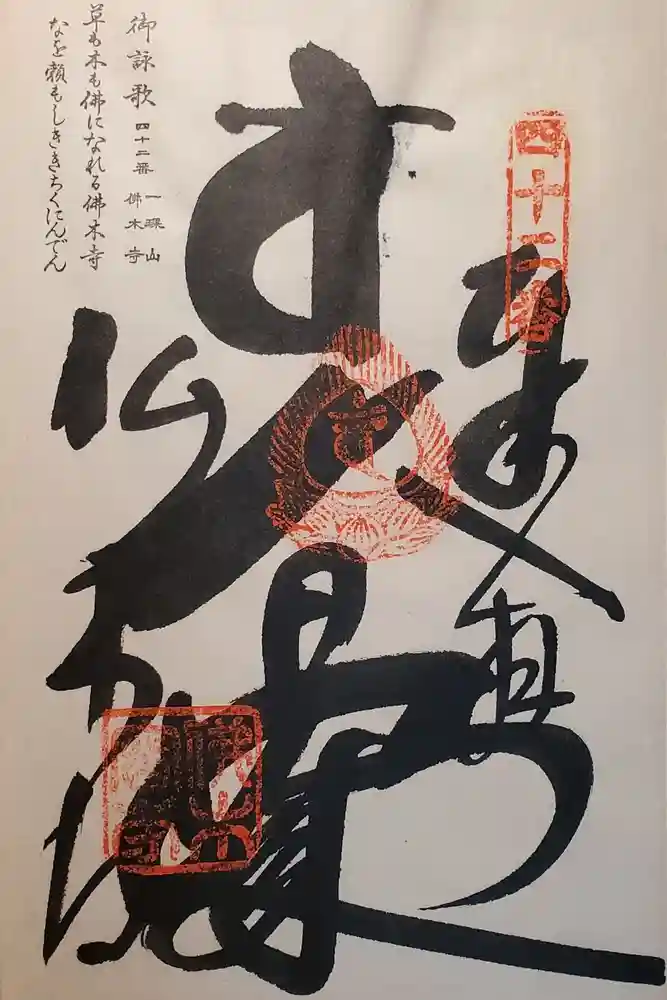 四十二番
大日如来
仏木寺
御詠歌 四十二番
佛木寺
草も木も佛になれる佛木寺
なを頼もしききちくにんでん